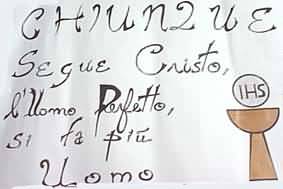 CHIUNQUE
Segue Cristo,
l'Uomo Perfetto,
si fa più
Uomo
IHS